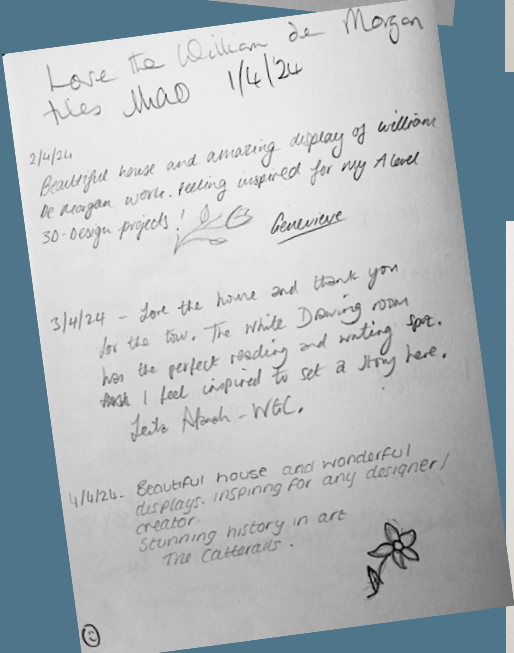 Love the William de Morgan
tiles 1/4/24
2/4/24
Beautiful house and amazing display of william
De Morgan work. Feeling inspired for my A level
3D-Design projects!
Genevieve
3/4/24 - Love the home and thank you
for the tour. The White Drawing room
has the perfect reading and writing spot.
I feel inspired to set a story here.
Leila - WGC.
4/4/24. Beautiful house and wonderful
displays. inspiring for any designer/
creator.
Stunning history in art
The Catteralls.